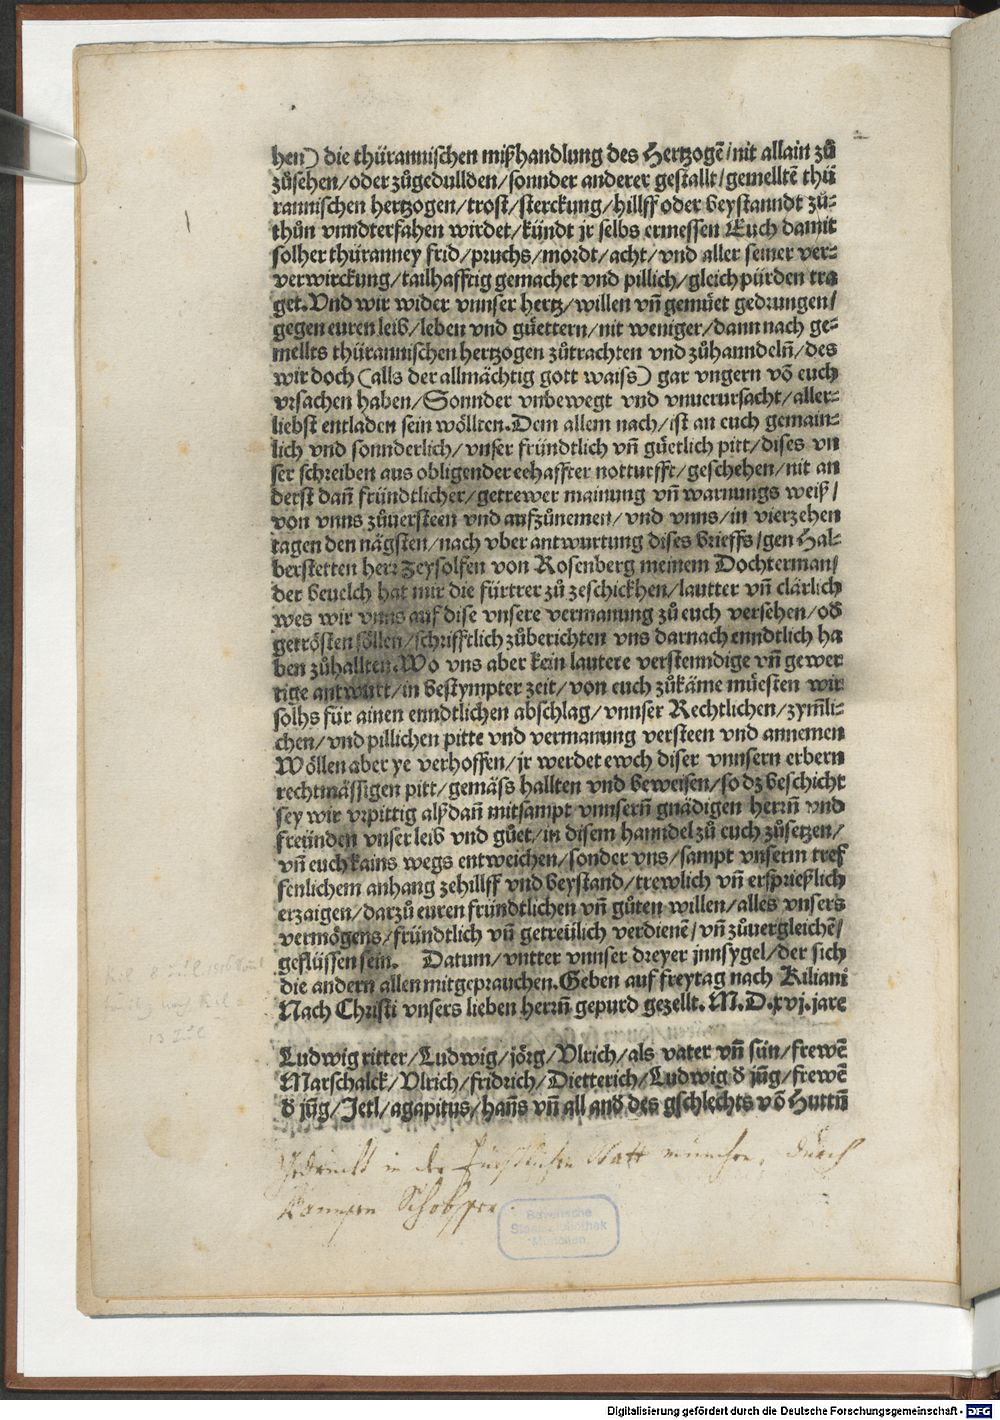 hen) die thürannischen mißhandlung des Hertzogē/nit allain zů
zůsehen/oder zůgedullden/sonnder anderer gestallt/gemelltē thü
rannischen hertzogen/trost/sterckung/hillff oder beystanndt zů-
thůn vnndterfahen wirdet/kündt jr selbs ermessen Euch damit
solher thüranney frid/pruchs/mordt/acht/vnd aller seiner ver-
verwirckung/tailhafftig gemachet vnd pillich/gleich pürden tra
get. Vnd wir wider vnnser hertz/willen vn̄ gemüet gedrungen/
gegen euren leib/leben vnd güettern/nit weniger/dann nach ge-
mellts thürannischen hertzogen zůtrachten vnd zůhanndeln̄/des
wir doch (alls der allmächtig gott waiss) gar vngern vō euch
vrsachen haben/Sonnder vnbewegt vnd vnuerursacht/aller-
liebst entladen sein wöllten. Dem allem nach/ist an euch gemain-
lich vnd sonnderlich/vnser fründtlich vn̄ güetlich pitt/dises vn
ser schreiben aus obligender eehaffter notturfft/geschehen/nit an
derst dan̄ fründtlicher/getrewer mainung vn̄ warnungs weiß/
von vnns zůuersteen vnd aufzůnemen/vnd vnns/in vierzehen
tagen den nägsten/nach vber antwurtung dises brieffs/gen Hal-
berstetten herr Zeysolfen von Rosenberg meinem Dochterman/
der beuelch hat mir die fürtrer zů zeschickhen/lautter vn̄ clärlich
wes wir vnns auf dise vnsere vermanung zů euch versehen/od
getrösten söllen/schrifftlich zůberichten vns darnach enndtlich ha
ben zůhallten. Wo vns aber kein lautere verstenndige vn̄ gewer
tige antwurt/in bestympter zeit/von euch zůkäme müesten wir
solhs für ainen enndtlichen abschlag/vnnser Rechtlichen/zym̄li-
chen/vnd pillichen pitte vnd vermanung versteen vnd annemen
Wöllen aber ye verhoffen/jr werdet ewch diser vnnsern erbern
rechtmässigen pitt/gemäss hallten vnd beweisen/so dz beschicht
sey wir vrpittig alßdan̄ mitsampt vnnsern̄ gnädigen herrn̄ vnd
freünden vnser leib vnd gůet/in disem hanndel zů euch zůsetzen/
vn̄ euch kains wegs entweichen/sonder vns/sampt vnserm tref
fenlichem anhang zehillff vnd beystand/trewlich vn̄ ersprießlich
erzaigen/darzů euren fründtlichen vn̄ gůten willen/alles vnsers
vermögens/fründtlich vn̄ getreülich verdienē/vn̄ zůuergleichē/
geflüssen sein. Datum/vntter vnnser dreyer jnnsygel/der sich
die andern allen mitgeprauchen. Geben auf freytag nach Kiliani
Nach Christi vnsers lieben herrn̄ gepurd gezellt. M.D.xvj. jare
Ludwig ritter/Ludwig/jörg/Vlrich/als vater vn̄ sün/frewē
Marschalck/Vlrich/fridrich/Dietterich/Ludwig d jn̄g/frewē
d jn̄g/Jetl/agapitus/han̄s vn̄ all and des gschlechts vō Huttn̄
Gedruckt in der fürstlichen Statt münchen, durch
Hannsen Schobsser.
Bayerische
Staatsbibliothek
München
Digitalisierung gefördert durch die Deutsche Forschungsgemeinschaft - DFG